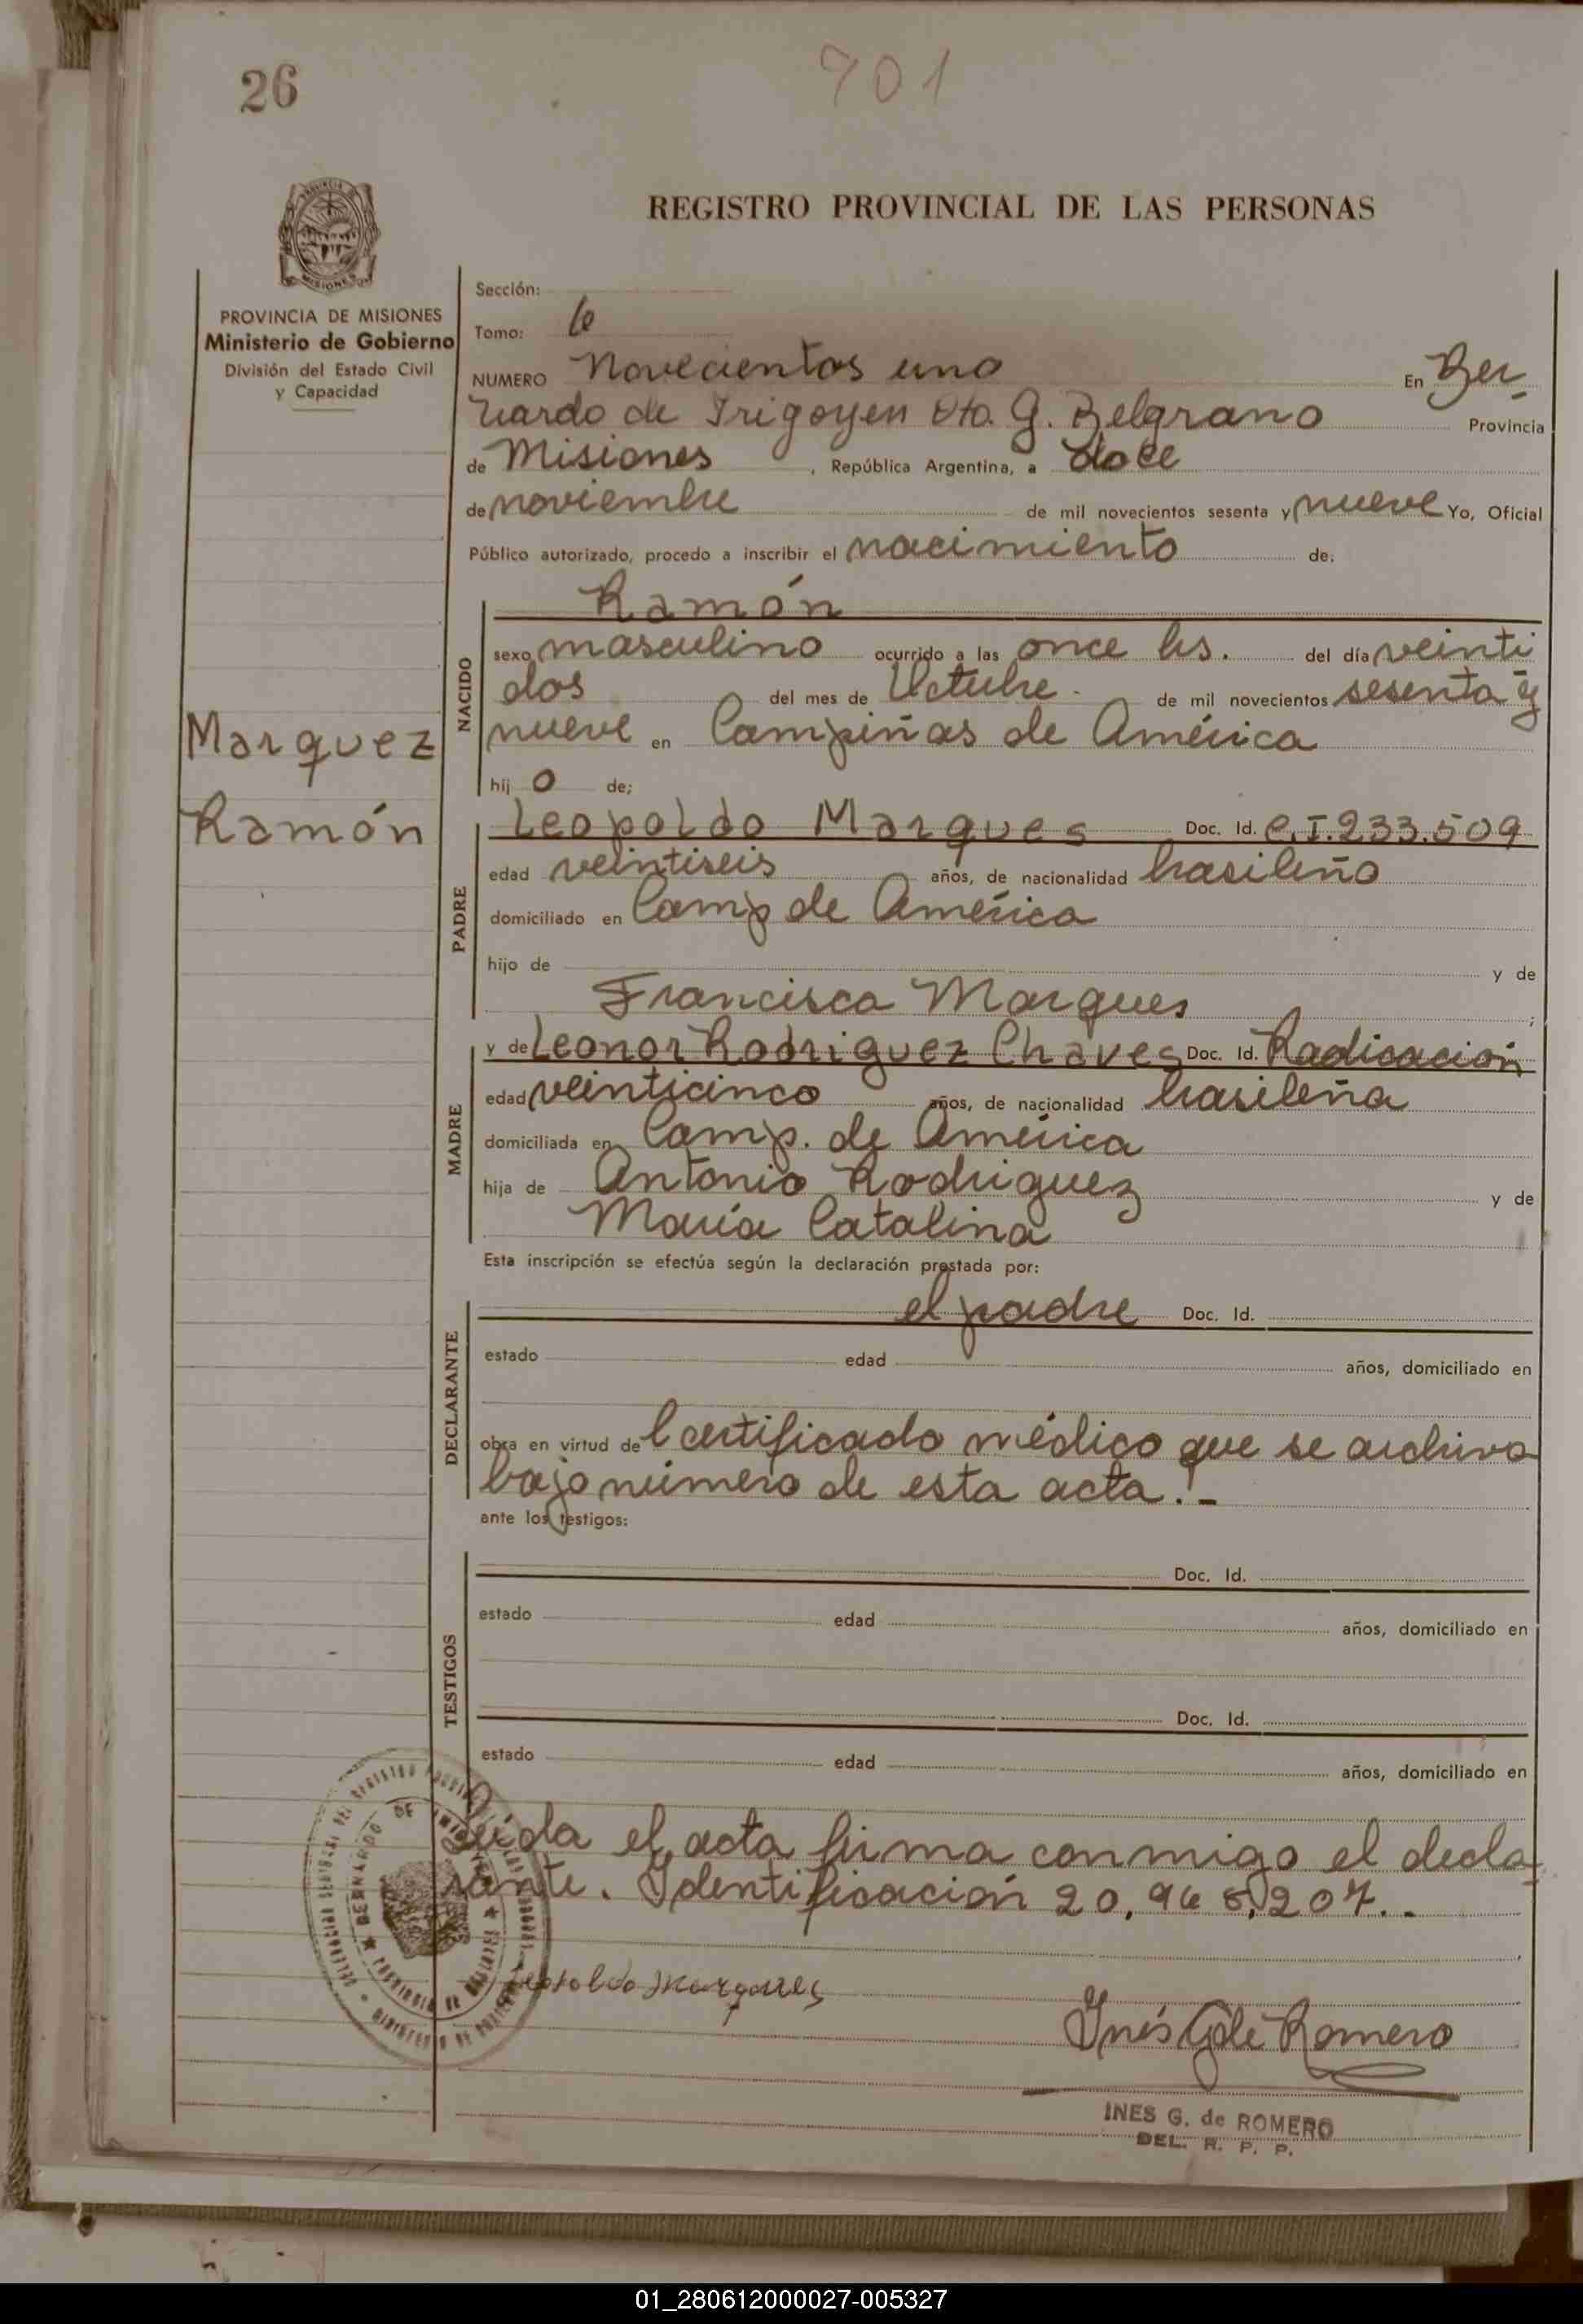 26
701
REGISTRO PROVINCIAL DE LAS PERSONAS
MISIONES
PROVINCIA DE MISIONES
Ministerio de Gobierno
División del Estado Civil
y Capacidad
Sección:
Tomo: 6
NUMERO Novecientos uno En Ber
nardo de Irigoyen Dto. G. Belgrano Provincia
de Misiones, República Argentina, a doce
de noviembre de mil novecientos sesenta y nueve Yo, Oficial
Público autorizado, procedo a inscribir el nacimiento de:
NACIDO
Ramón
sexo masculino ocurrido a las once hs. del día veinti
dos del mes de Octubre - de mil novecientos sesenta y
nueve en Campiñas de América
hij o de;
Marquez
Ramón
PADRE
Leopoldo Marques Doc. Id. C.I. 233.509
edad veintiseis años, de nacionalidad brasileño
domiciliado en Camp de América
hijo de y de
Francisca Marques ;
MADRE
y de Leonor Rodriguez Chaves Doc. Id. Radicación
edad veinticinco años, de nacionalidad brasileña
domiciliada en Camp. de América
hija de Antonio Rodriguez y de
María Catalina
Esta inscripción se efectúa según la declaración prestada por:
DECLARANTE
el padre Doc. Id.
estado edad años, domiciliado en
obra en virtud de l certificado médico que se archiva
bajo número de esta acta.-
ante los testigos:
TESTIGOS
Doc. Id.
estado edad años, domiciliado en
Doc. Id.
estado edad años, domiciliado en
Leida el acta firma conmigo el decla
rante. Identificación 20.968.207.-
Leopoldo Marques
Inés G de Romero
INES G. de ROMERO
DEL. R. P. P.
01_280612000027-005327